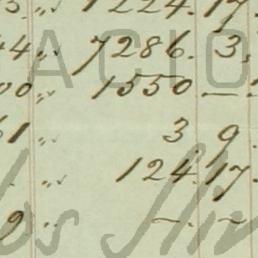 5. „ 1224. 17.
44 „ 7286. 3.
00 „ 1550 — .
61 „ 3 9.
„ 124. 17.
9 „ —. —